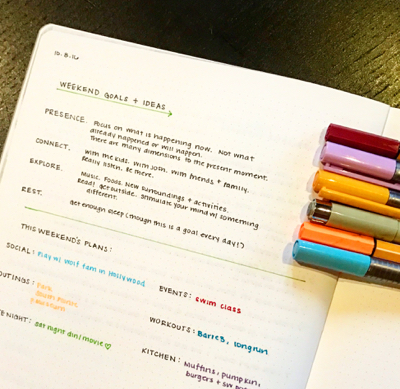 10.8.16
WEEKEND GOALS + IDEAS
PRESENCE. Focus on what is happening now. Not what
already happened or will happen.
There are many dimensions to the present moment.
CONNECT. With the kids. With Josh. With friends + family.
Really listen. Be there.
EXPLORE. Music. Foods. New surroundings + activities.
Read! Get outside. Stimulate your mind w/ something
different.
REST. Get enough sleep (though this is a goal every day!)
THIS WEEKEND'S PLANS:
SOCIAL: Play w/ Wolf fam in Hollywood
EVENTS: Swim class
OUTINGS: Park
WORKOUTS: Barre3, longrun
E NIGHT: Get night din/movie ♡
KITCHEN: Muffins, pumpkin,
burgers +